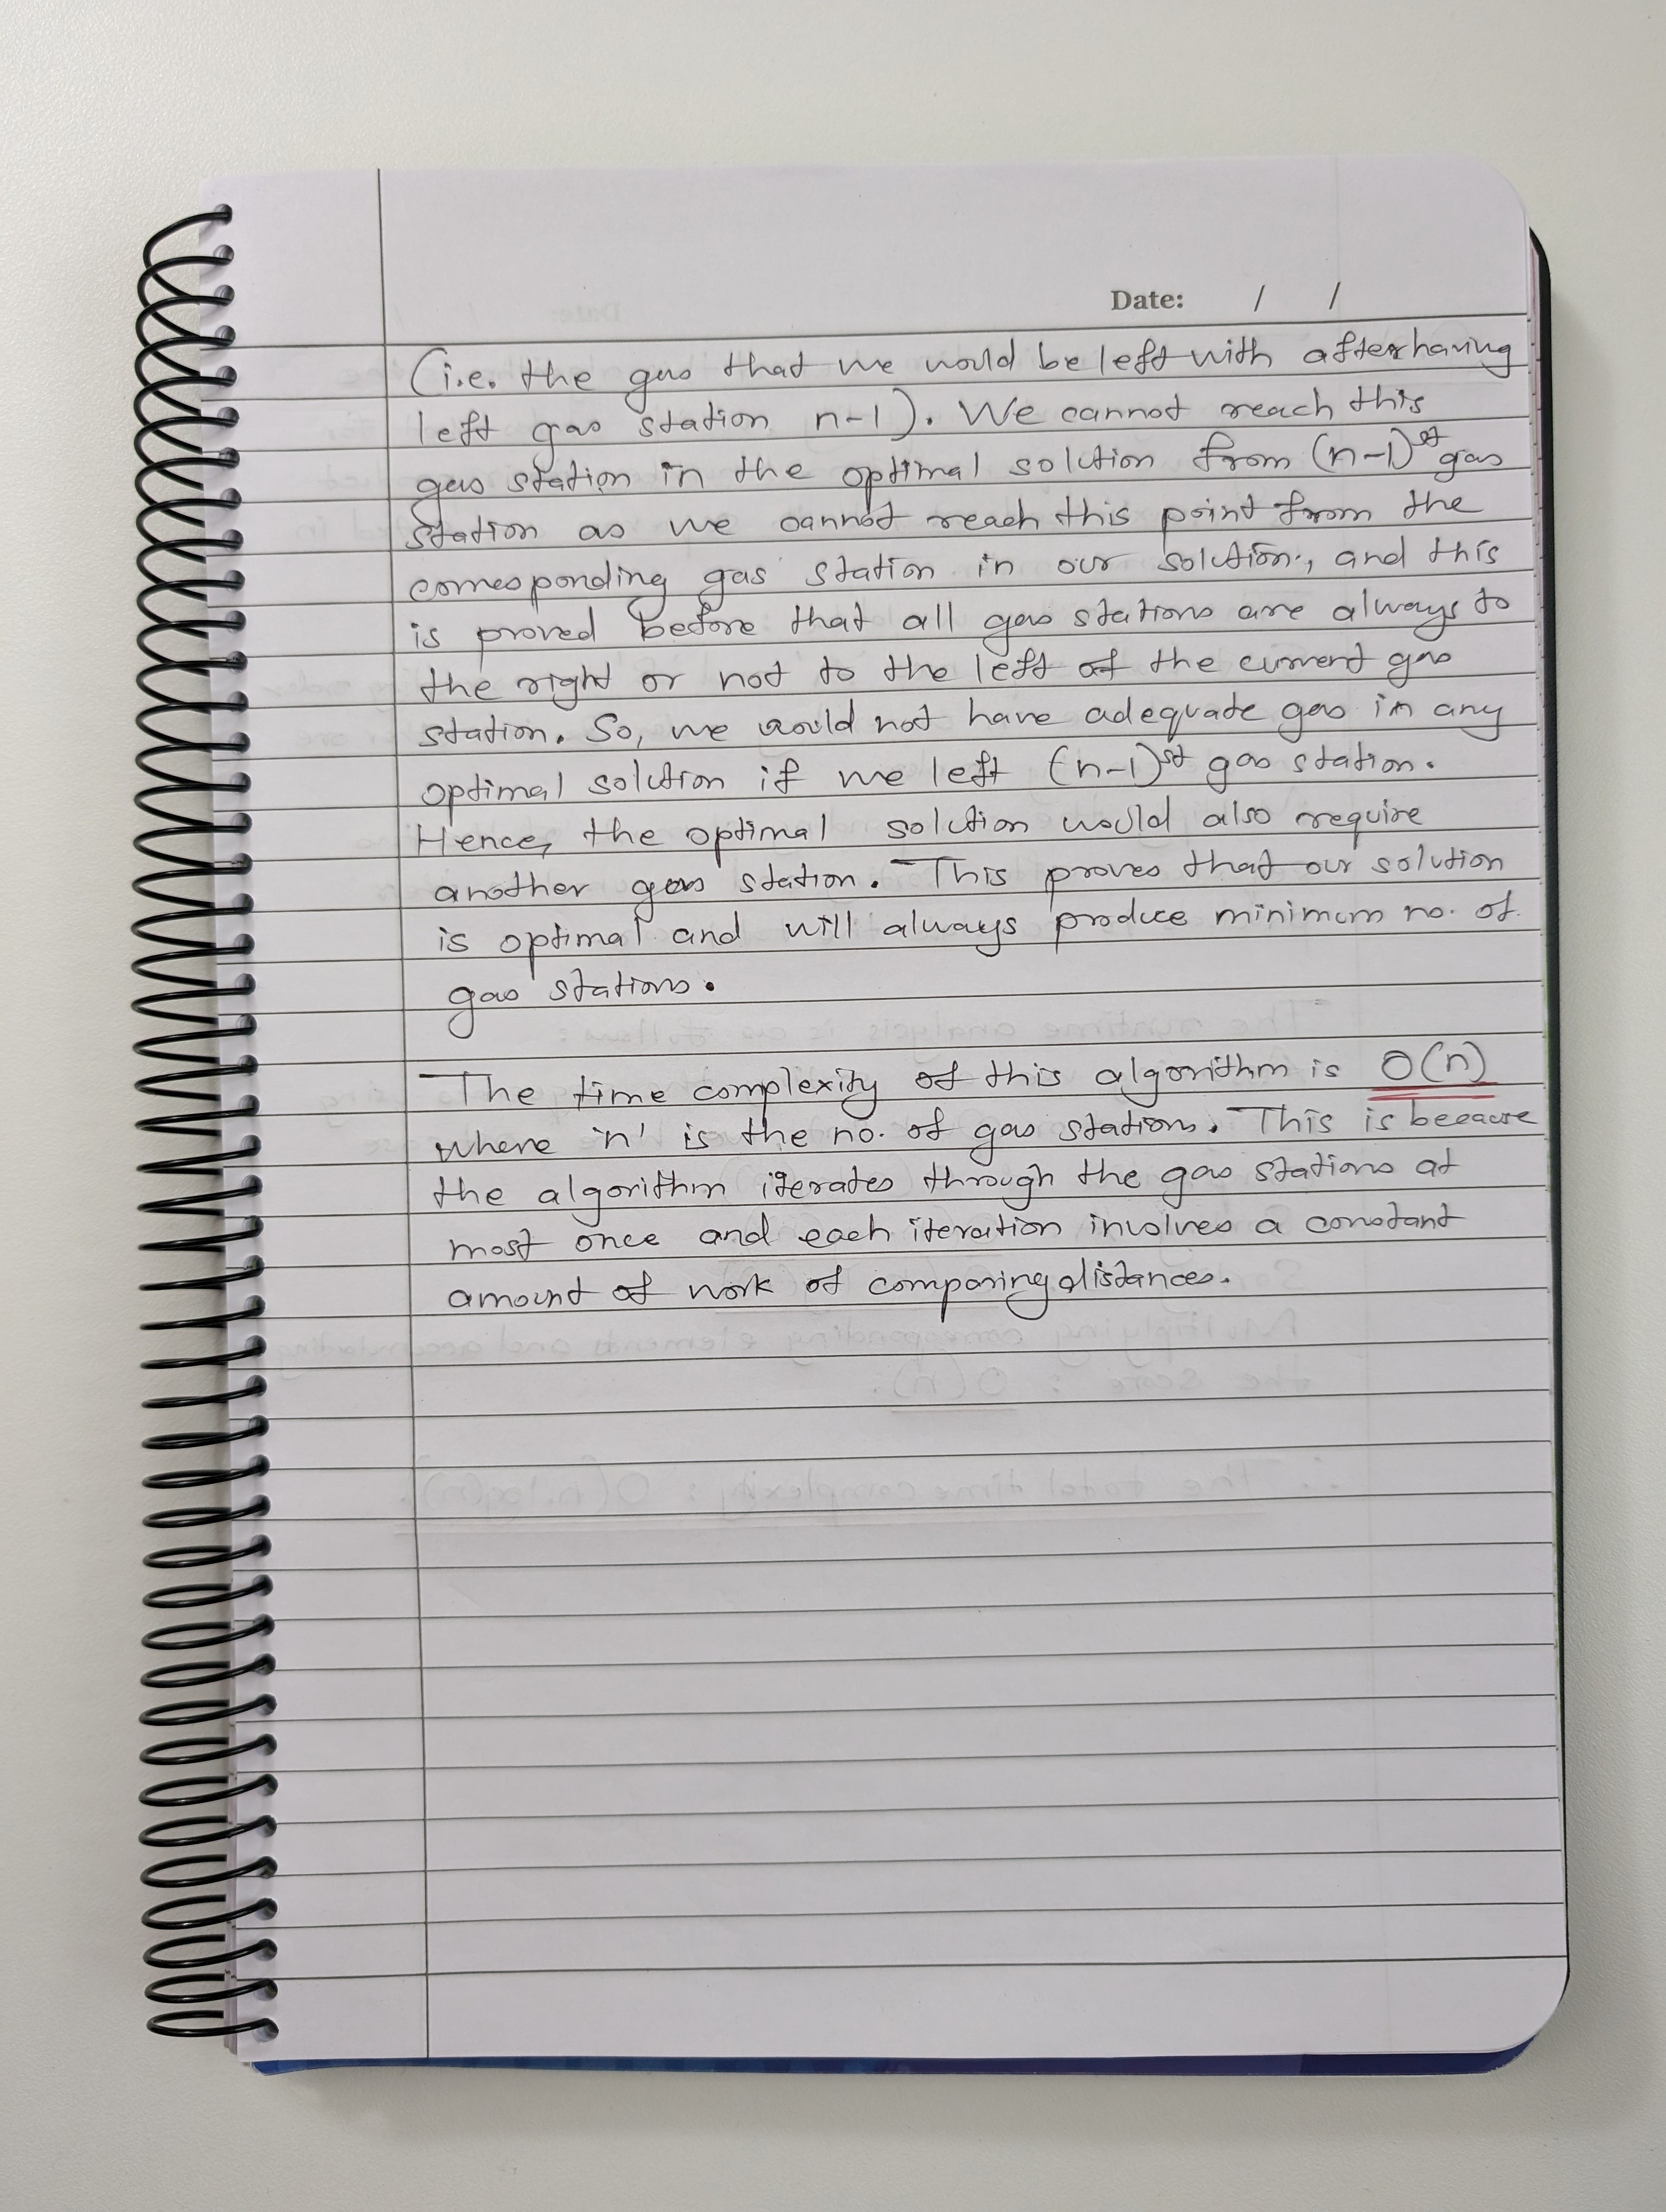 Date: / /
(i.e. the gas that we would be left with after having
left gas station n-1). We cannot reach this
gas station in the optimal solution from (n-1)st gas
station as we cannot reach this point from the
corresponding gas station in our solution, and this
is proved before that all gas stations are always to
the right or not to the left of the current gas
station. So, we would not have adequate gas in any
optimal solution if we left (n-1)st gas station.
Hence, the optimal solution would also require
another gas station. This proves that our solution
is optimal and will always produce minimum no. of
gas stations.
The time complexity of this algorithm is O(n)
where 'n' is the no. of gas stations. This is because
the algorithm iterates through the gas stations at
most once and each iteration involves a constant
amount of work of comparing distances.
The runtime analysis is as follows:
Multiplying corresponding elements and accumulating
the score : O(n).
∴ The total time complexity : O(n.log(n)).